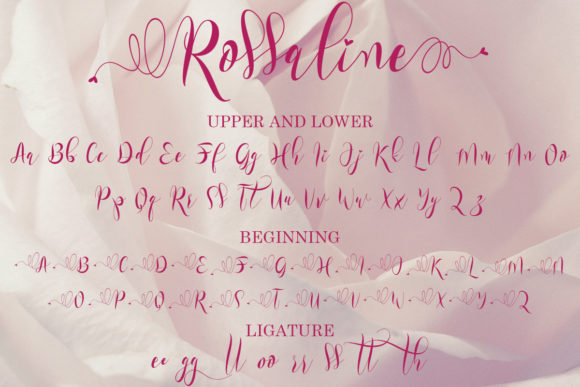 Rossaline
UPPER AND LOWER
Aa Bb Cc Dd Ee Ff Gg Hh Ii Jj Kk Ll Mm Nn Oo
Pp Qq Rr Ss Tt Uu Vv Ww Xx Yy Zz
BEGINNING
A B C D E F G H I J K L M N
O P Q R S T U V W X Y Z
LIGATURE
ee gg ll oo rr ss tt th